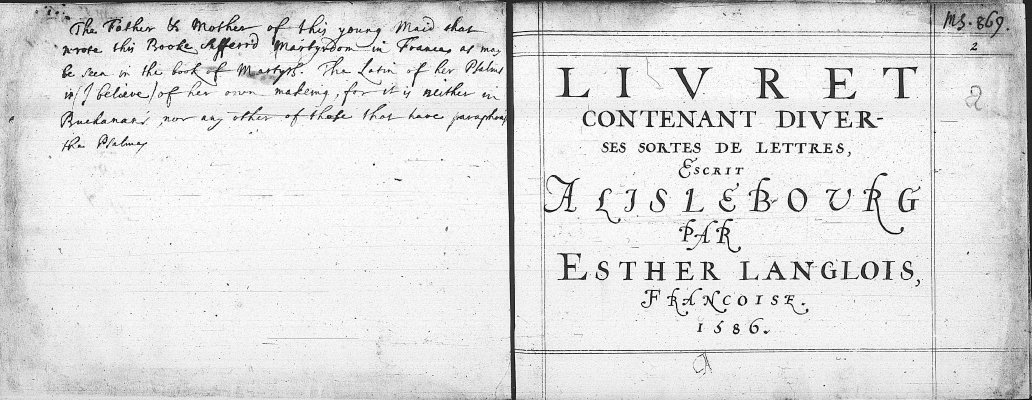 The Father & Mother of this young Maid that
wrote this Booke sufferd Martyrdom in France, as may
be seen in the book of Martyrs. The Latin of her Psalms
is (I believe) of her own making, for it is neither in
Buchanans, nor any other of those that have paraphras'
the Psalmes
MS. 869.
2
LIVRET
CONTENANT DIVER-
SES SORTES DE LETTRES,
ESCRIT
ALISLEBOURG
PAR
ESTHER LANGLOIS,
FRANCOISE.
1586.